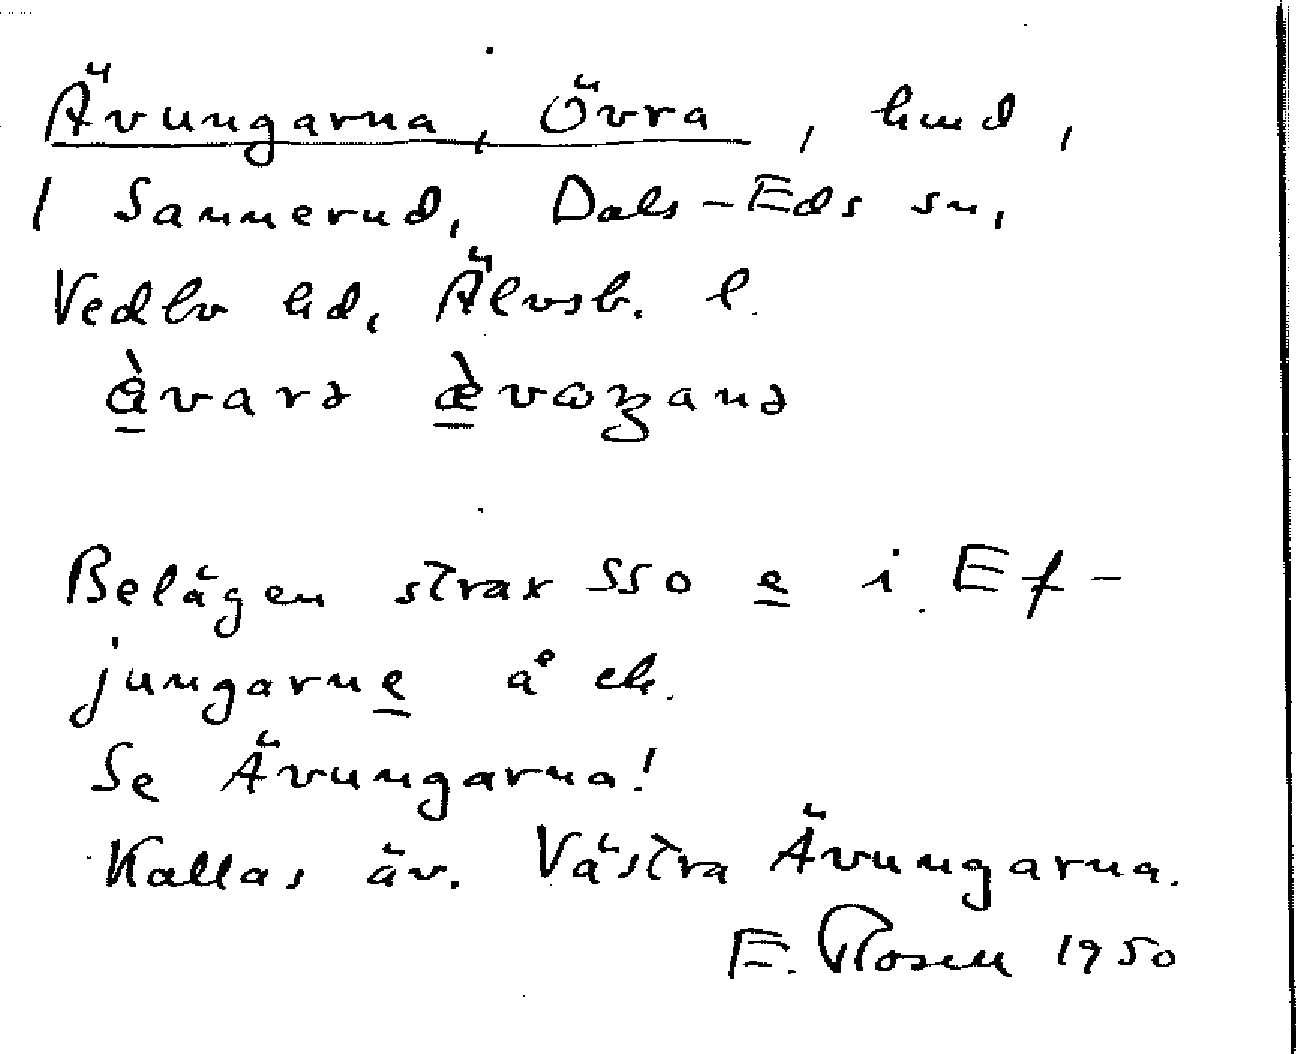 Ävungarna, Övra, hmd,
1 Sannerud, Dals-Eds sn,
Vedbo hd, Älvsb. l.
Belägen strax SSO e i Ef-
jungarne å ek.
Se Ävungarna!
Kallas äv. Västra Ävungarna.
E. Rosell 1950